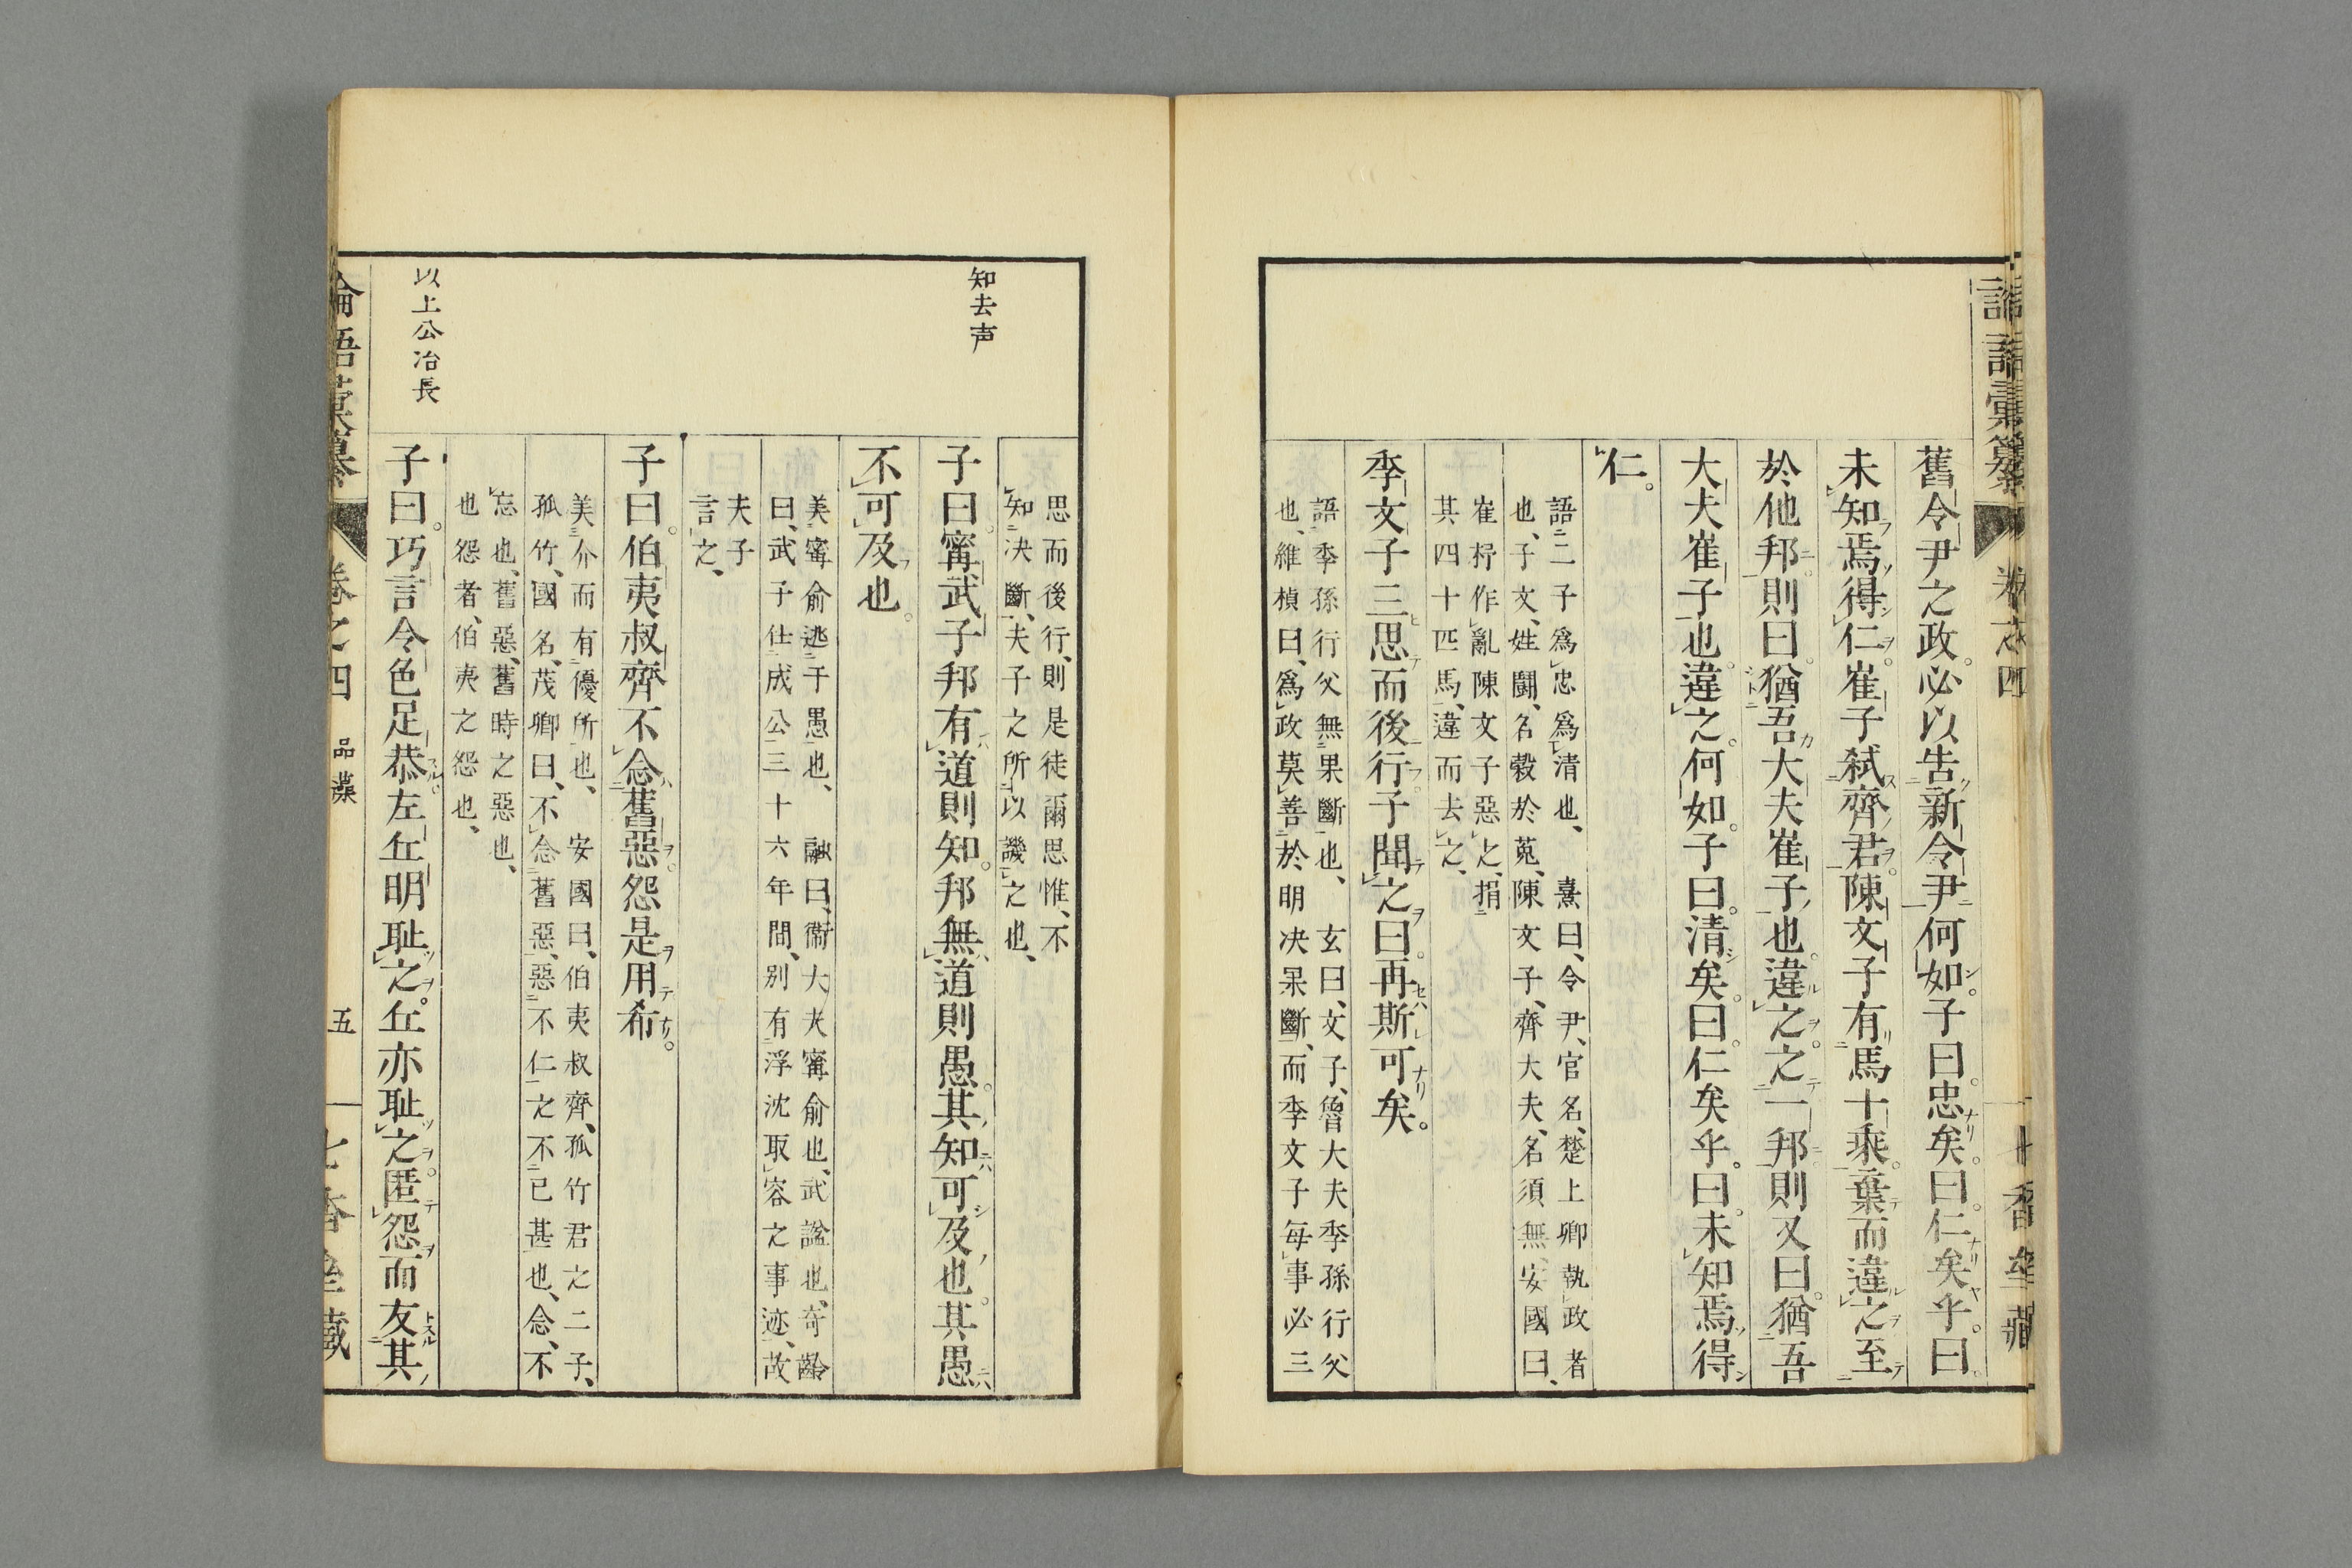 論語彙纂
卷之四
七香𡋯藏
舊令尹之政。必以告新令尹何如。子曰。忠矣。曰。仁矣乎。曰。
未知焉得仁。崔子弑齊君。陳文子有馬十乘。棄而違之至
於他邦。則曰。猶吾大夫崔子也。違之。之一邦則又曰。猶吾
大夫崔子也。違之。何如。子曰。清矣。曰。仁矣乎。曰。未知焉得
仁。
語二子爲忠爲清也、熹曰、令尹、官名、楚上卿執政者
也、子文、姓鬬、名穀於菟、陳文子、齊大夫、名須無、安國曰、
崔杼作亂陳文子惡之、捐
其四十匹馬、違而去之、
季文子三思而後行。子聞之曰。再斯可矣。
語季孫行父無果斷也、玄曰、文子、魯大夫季孫行父
也、維楨曰、爲政莫善於明决果斷、而季文子每事必三
知去声
以上公冶長
思而後行、則是徒爾思惟、不
知决斷、夫子之所以譏之也、
子曰。甯武子邦有道則知。邦無道則愚。其知可及也。其愚
不可及也。
美甯俞逃于愚也、融曰、衞大夫甯俞也、武謚也、奇齡
曰、武子仕成公三十六年間、别有浮沈取容之事迹、故
夫子
言之、
子曰。伯夷叔齊不念舊惡。怨是用希。
美介而有優所也、安國曰、伯夷叔齊、孤竹君之二子、
孤竹、國名、茂卿曰、不念舊惡、惡不仁之不已甚也、念、不
忘也、舊惡、舊時之惡也、
也怨者、伯夷之怨也、
子曰。巧言令色足恭。左丘明耻之。丘亦耻之。匿怨而友其
論語彙纂
卷之四
品藻
五
七香𡋯藏